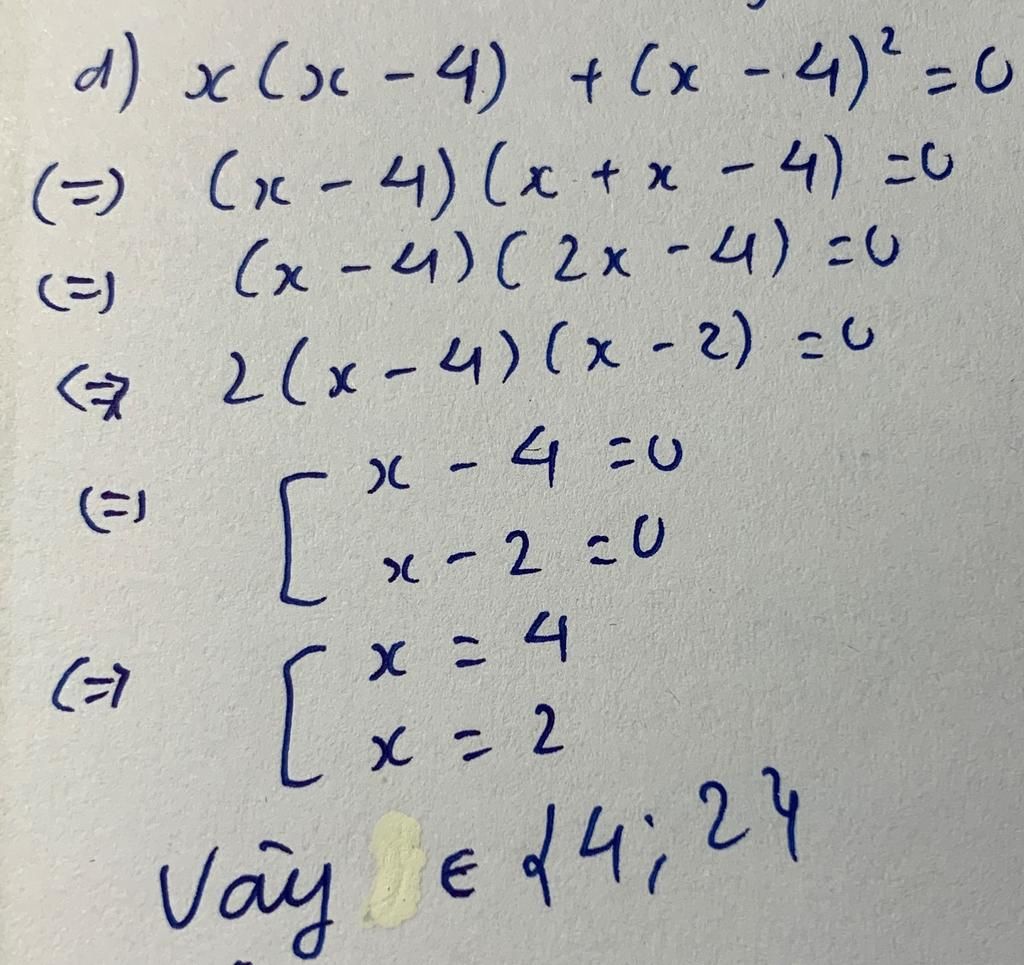 d) x(x - 4) + (x - 4)² = 0
(=) (x - 4)(x + x - 4) = 0
(=) (x - 4)(2x - 4) = 0
(=) 2(x - 4)(x - 2) = 0
(=) [ x - 4 = 0
x - 2 = 0
(=) [ x = 4
x = 2
Vậy ∈ {4; 2}